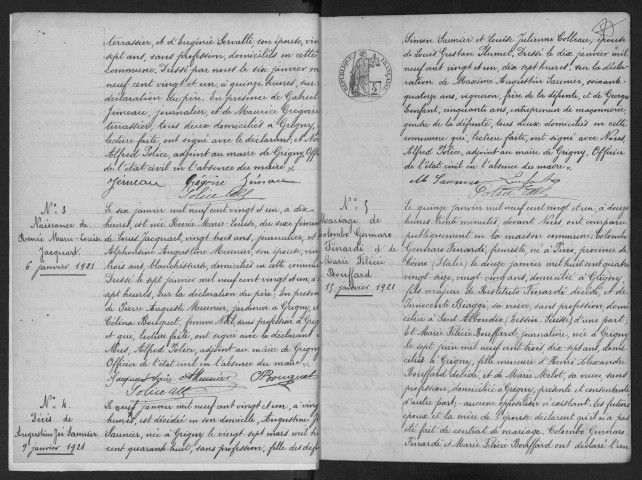 terrassier, et d'Eugénie Servalli, son épouse, vin
sept ans, sans profession, domiciliés en cette
commune. Dressé par nous le six janvier
neuf cent vingt et un, à quinze heures, sur
déclaration du père. En présence de Gabriel
Jémeau, journalier, et de Maurice Grégoire
terrassier, tous deux domiciliés à Grigny,
lecture faite, ont signé avec le déclarant, et No
Alfred Police, adjoint au maire de Grigny Offi
de l'état civil en l'absence du maire.
Jémeau Grégoire
N° 3
Naissance de
Renée Marie-Louise
Jacquart.
6 janvier 1921
Le six janvier mil neuf cent vingt et un, à dix
heures, est née Renée Marie-Louise, du sexe féminin
de Louis Jacquart, vingt trois ans, journalier, et
Alphonsine Augustine Meunier, son épouse, vin
trois ans, blanchisseuse, domiciliés en cette commune
Dressé le sept janvier mil neuf cent vingt et un, à
sept heures, sur la déclaration du père, En présen
de Pierre Auguste Meunier, jardinier à Grigny, et
Célina Bouquet, femme sans profession à Grig
et qui, lecture faite, ont signé avec le déclarant
Nous Alfred Police, adjoint au maire de Grigny
Officier de l'état civil en l'absence du maire.
Meunier Bouquet
N° 4.
Décès de
Augustine Saunier
9 janvier 1921
Le neuf janvier mil neuf cent vingt et un, à vingt
heures, est décédée en son domicile, Augustine
Saunier, née à Grigny le vingt sept mars mil h
cent quarante huit, sans profession, fille des défu
RÉPUBLIQUE FRANÇAISE
Simon Saunier et Louise Julienne Colleau, épouse
de Louis Gustave Plumet. Dressé le dix janvier mil
neuf cent vingt et un, dix sept heures, sur la décla
ration de Maxime Augustin Saunier, soixante
quatorze ans, vigneron, frère de la défunte, et de Georges
cinquante ans, entrepreneur de maçonnerie,
gendre de la défunte, tous deux domiciliés en cette
commune qui, lecture faite, ont signé avec Nous,
Alfred Police, adjoint au maire de Grigny, Officier
de l'état civil en l'absence du maire.
Saunier
N° 5
Mariage de
Colombo Gennaro
Finardi et de
Marie Félicie
Bouffard
15 janvier 1921
Le quinze janvier mil neuf cent vingt et un, à deux
heures trente minutes, devant Nous ont comparu
publiquement en la maison commune: Colombo
Gennaro Finardi, fumiste, né à province de
Côme (Italie), le douze janvier mil huit cent quatre
vingt seize, vingt cinq ans, domicilié à Grigny,
fils majeur de Finardi décédé, et de
Innocente Biaggi sa veuve, sans profession, domi
ciliée à Sant Abbondio (Tessin Suisse) d'une part,
Et Marie Félicie Bouffard, journalière, née à Grigny
le sept juin mil neuf cent trois, domi
ciliée à Grigny, fille mineure de Henri Alexandre
Bouffard décédé, et de Marie Merlot, sa veuve, sans
profession, domiciliée à Grigny, présente et consentante
d'autre part, aucune opposition n'existant. Les futurs
époux et la mère de l'épouse déclarent qu'il n'a pas
été fait de contrat de mariage. Colombo Gennaro
Finardi et Marie Félicie Bouffard ont déclaré l'un